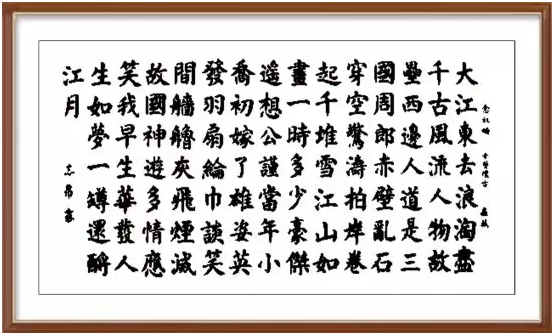 念奴嬌 赤壁懷古 蘇軾
大江東去浪淘盡
千古風流人物故
壘西邊人道是三
國周郎赤壁亂石
穿空驚濤拍岸卷
起千堆雪江山如
畫一時多少豪傑
遥想公謹當年小
喬初嫁了雄姿英
發羽扇綸巾談笑
間艢艪灰飛煙滅
故國神遊多情應
笑我早生華發人
生如夢一罇還酹
江月